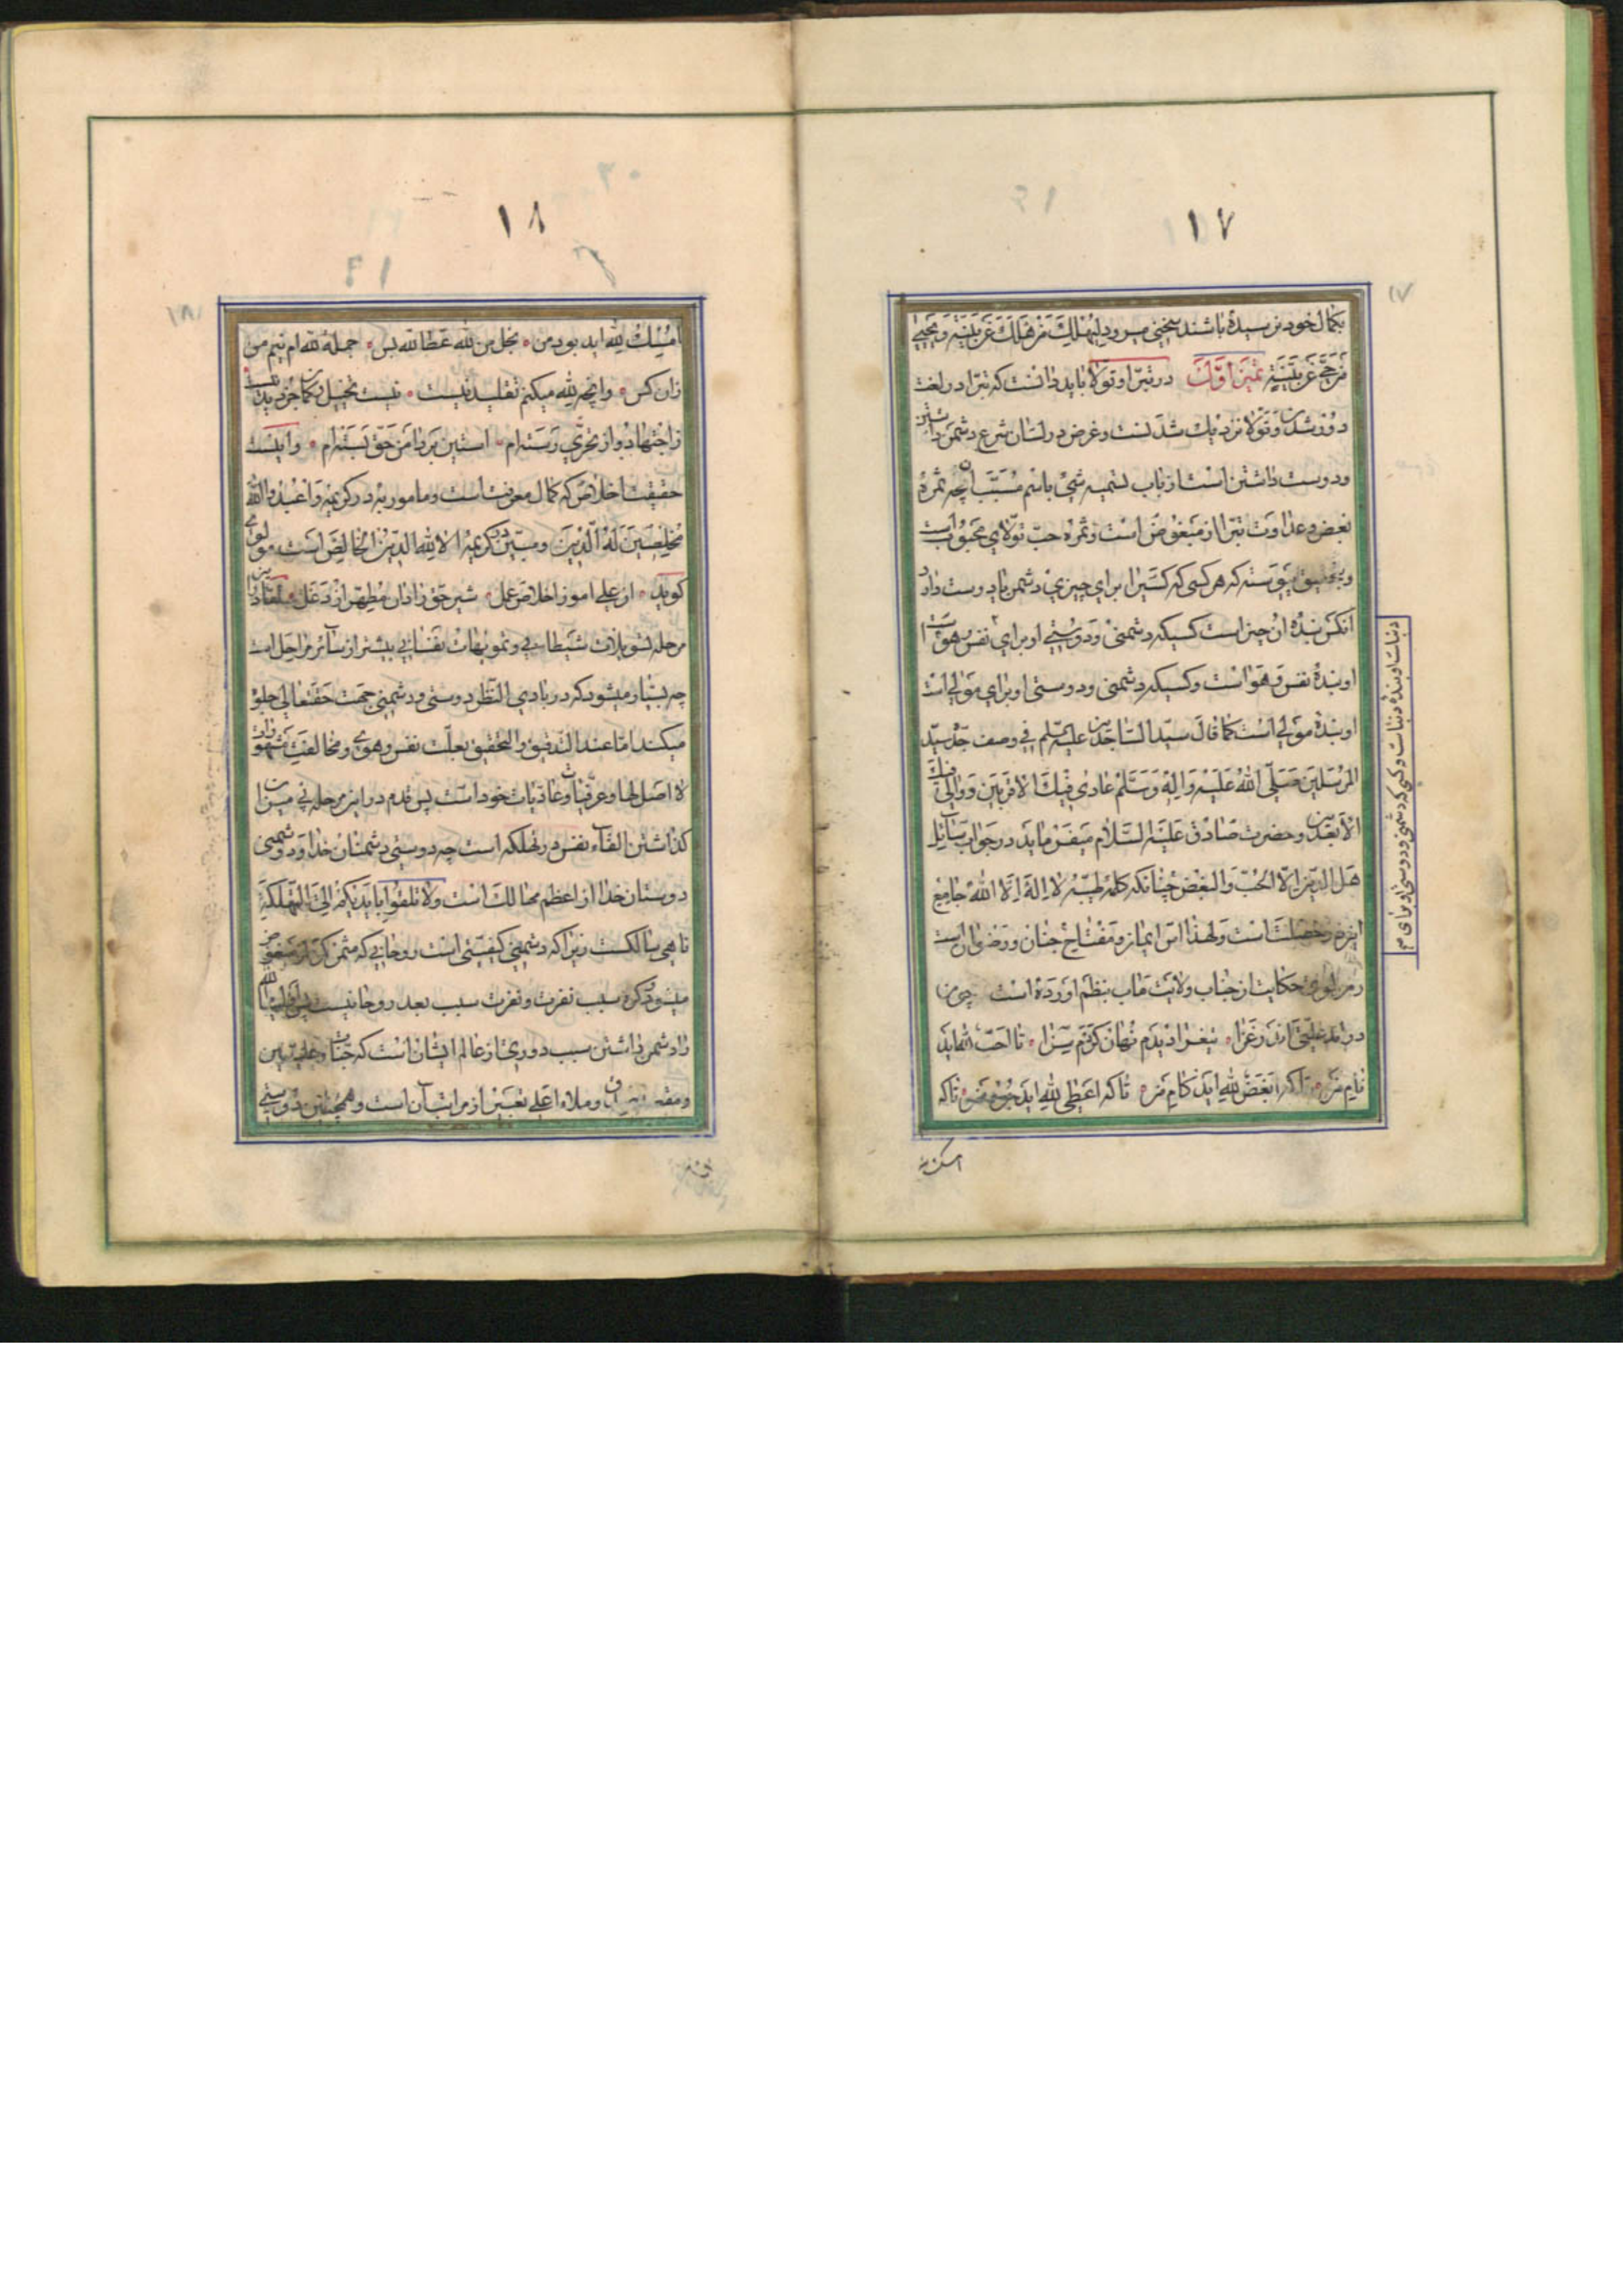 ۱۷
بکمال خود نرسیده باشند سخنی میرود لِیَهْلِكَ مَنْ هَلَكَ عَنْ بَیِّنَةٍ وَ یَحْییٰ
مَنْ حَیَّ عَنْ بَیِّنَةٍ ثمین اوّل در تبرّا و تولّا باید دانست که تبرّا در لغت
دور شدن و تولّا نزدیك شدنست و غرض در لسان شرع دشمن داشتن
و دوست داشتن است از باب تسمیه شیء باسم مسبّب چه ثمره
بغض و عداوت تبرّا از مبغوض است و ثمره حبّ تولّای محبوب است
و پیوسته که هر کسی که کسیرا برای چیزی دشمن یا دوست دارد
آنکس بنده آن چیز است کسیکه دشمنی و دوستی او برای نفس و هواست
او بنده نفس و هواست و کسیکه دشمنی و دوستی او برای مولی است
او بنده مولی است کما قال سیّد السّاجدین علیه السّلم فی وصف جدّه سیّد
المرسلین صَلَّی اللهُ عَلَیْهِ وَ الِهِ وَ سَلَّمْ عادی فیكَ الاقربین وَ والی فیكَ
الابعدین و حضرت صادق عَلَیْهِ السَّلام میفرماید در جواب سایل
هل الدّین الّا الحبّ و البغض چنانکه کلمه طیّبه لا اله الّا الله جامع
این دو خصلت است و لهذا اسّ ایمان و مفتاح جنان و رضوان است
حکایت از جناب ولایت مآب بنظم آورده است چون
در آمد علّتی اندر غزا تیغ را دیدم نهان کردن سزا تا احبّ لله آید
نام من تا که ابغض لله آید کام من تا که اعطی لله آید جود من تا که
امسك لله
دنیاست او بنده دنیاست و کسی که دشمنی و دوستی او برای
۱۸
امسك لله آید بود من بخل من لله عطا لله بس جمله لله ام نیم من
زان کس وانچه لله میکنم تقلید نیست نیست تخییل و گمان جز دید نیست
ز اجتهاد و از تحرّی رسته ام آستین بر دامن حق بسته ام و اینست
حقیقت اخلاص که کمال معرفت است و مامور به در کریمه وَ اعْبُدُوا اللهَ
مُخْلِصینَ لَهُ الدّینَ و مبیّن در کریمه الا لله الدّین الخالص است مولوی
گوید از علی آموز اخلاص عمل شیر حق را دان مطهّر از دغل
مرحله تسویلات شیطانی و تمویهات نفسانی بیشتر از سائر مراحل است
چه بسیار میشود که در بادی النّظر دوستی و دشمنی جهت حقتعالی جلوه
میکند امّا عند التّدقیق و التّحقیق بعلّت نفس و هوی و مخالفت شهوات
لا اصل لها و عرفیّات و عادیات خود است پس قدم در این مرحله بی میزان
گذاشتن القاء نفس در تهلکه است چه دوستی دشمنان خدا و دشمنی
دوستان خدا از اعظم مهالك است وَلا تُلْقُوا بِاَیْدیکُمْ اِلَی التَّهْلُکَةِ
ناهی سالکست زیرا که دشمنی کیفیّتی است روحانی که مثمر کره از مبغوض
میشود و کره سبب نفرت و نفرت سبب بعد روحانیست پس اولیاء الله
را دشمن داشتن سبب دوری از عالم ایشان است که جنّات و علّیّین
و ملاء اعلی تعبیر از مراتب آن است و همچنین دوستی